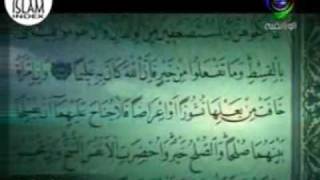 ISLAM
INDEX
والمستضعفين من الولدان وأن
بالقسط وما تفعلوا من خير فإن الله كان به عليما وإن امرأة
خافت من بعلها نشوزا أو إعراضا فلا جناح عليهما أن يصلحا
بينهما صلحا والصلح خير وأحضرت الأنفس الشح وإن